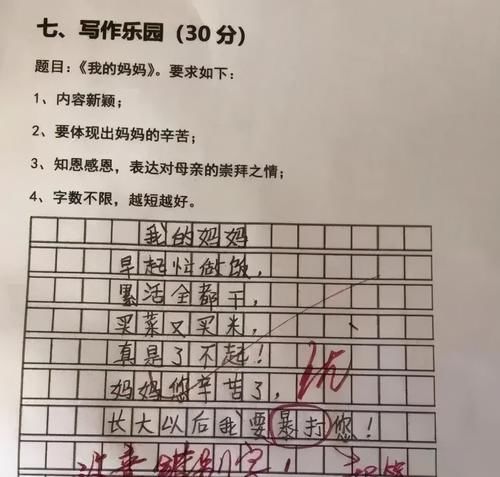 七、写作乐园（30分）
题目：《我的妈妈》。要求如下：
1、内容新颖；
2、要体现出妈妈的辛苦；
3、知恩感恩，表达对母亲的崇拜之情；
4、字数不限，越短越好。
我的妈妈
早起忙做饭，
累活全都干，
买菜又买米，
真是了不起！
妈妈您辛苦了，
长大以后我要暴打您！
注意错别字！